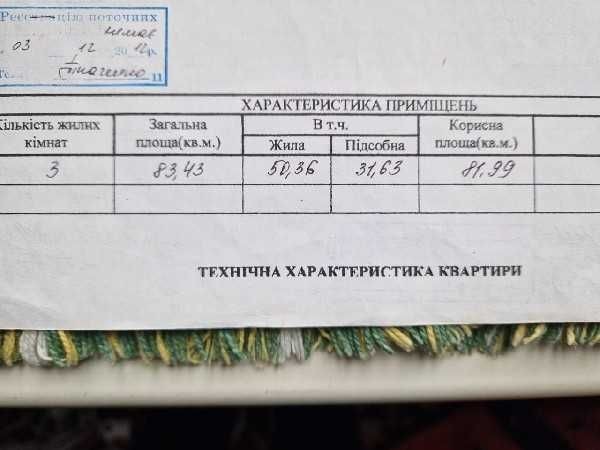 Реєстрацію поточних
немає
03 12 2012р.
11
ХАРАКТЕРИСТИКА ПРИМІЩЕНЬ
Кількість жилих кімнат
Загальна площа(кв.м.)
В т.ч.
Жила
Підсобна
Корисна площа(кв.м.)
3 83,43 50,36 31,63 81,99
ТЕХНІЧНА ХАРАКТЕРИСТИКА КВАРТИРИ